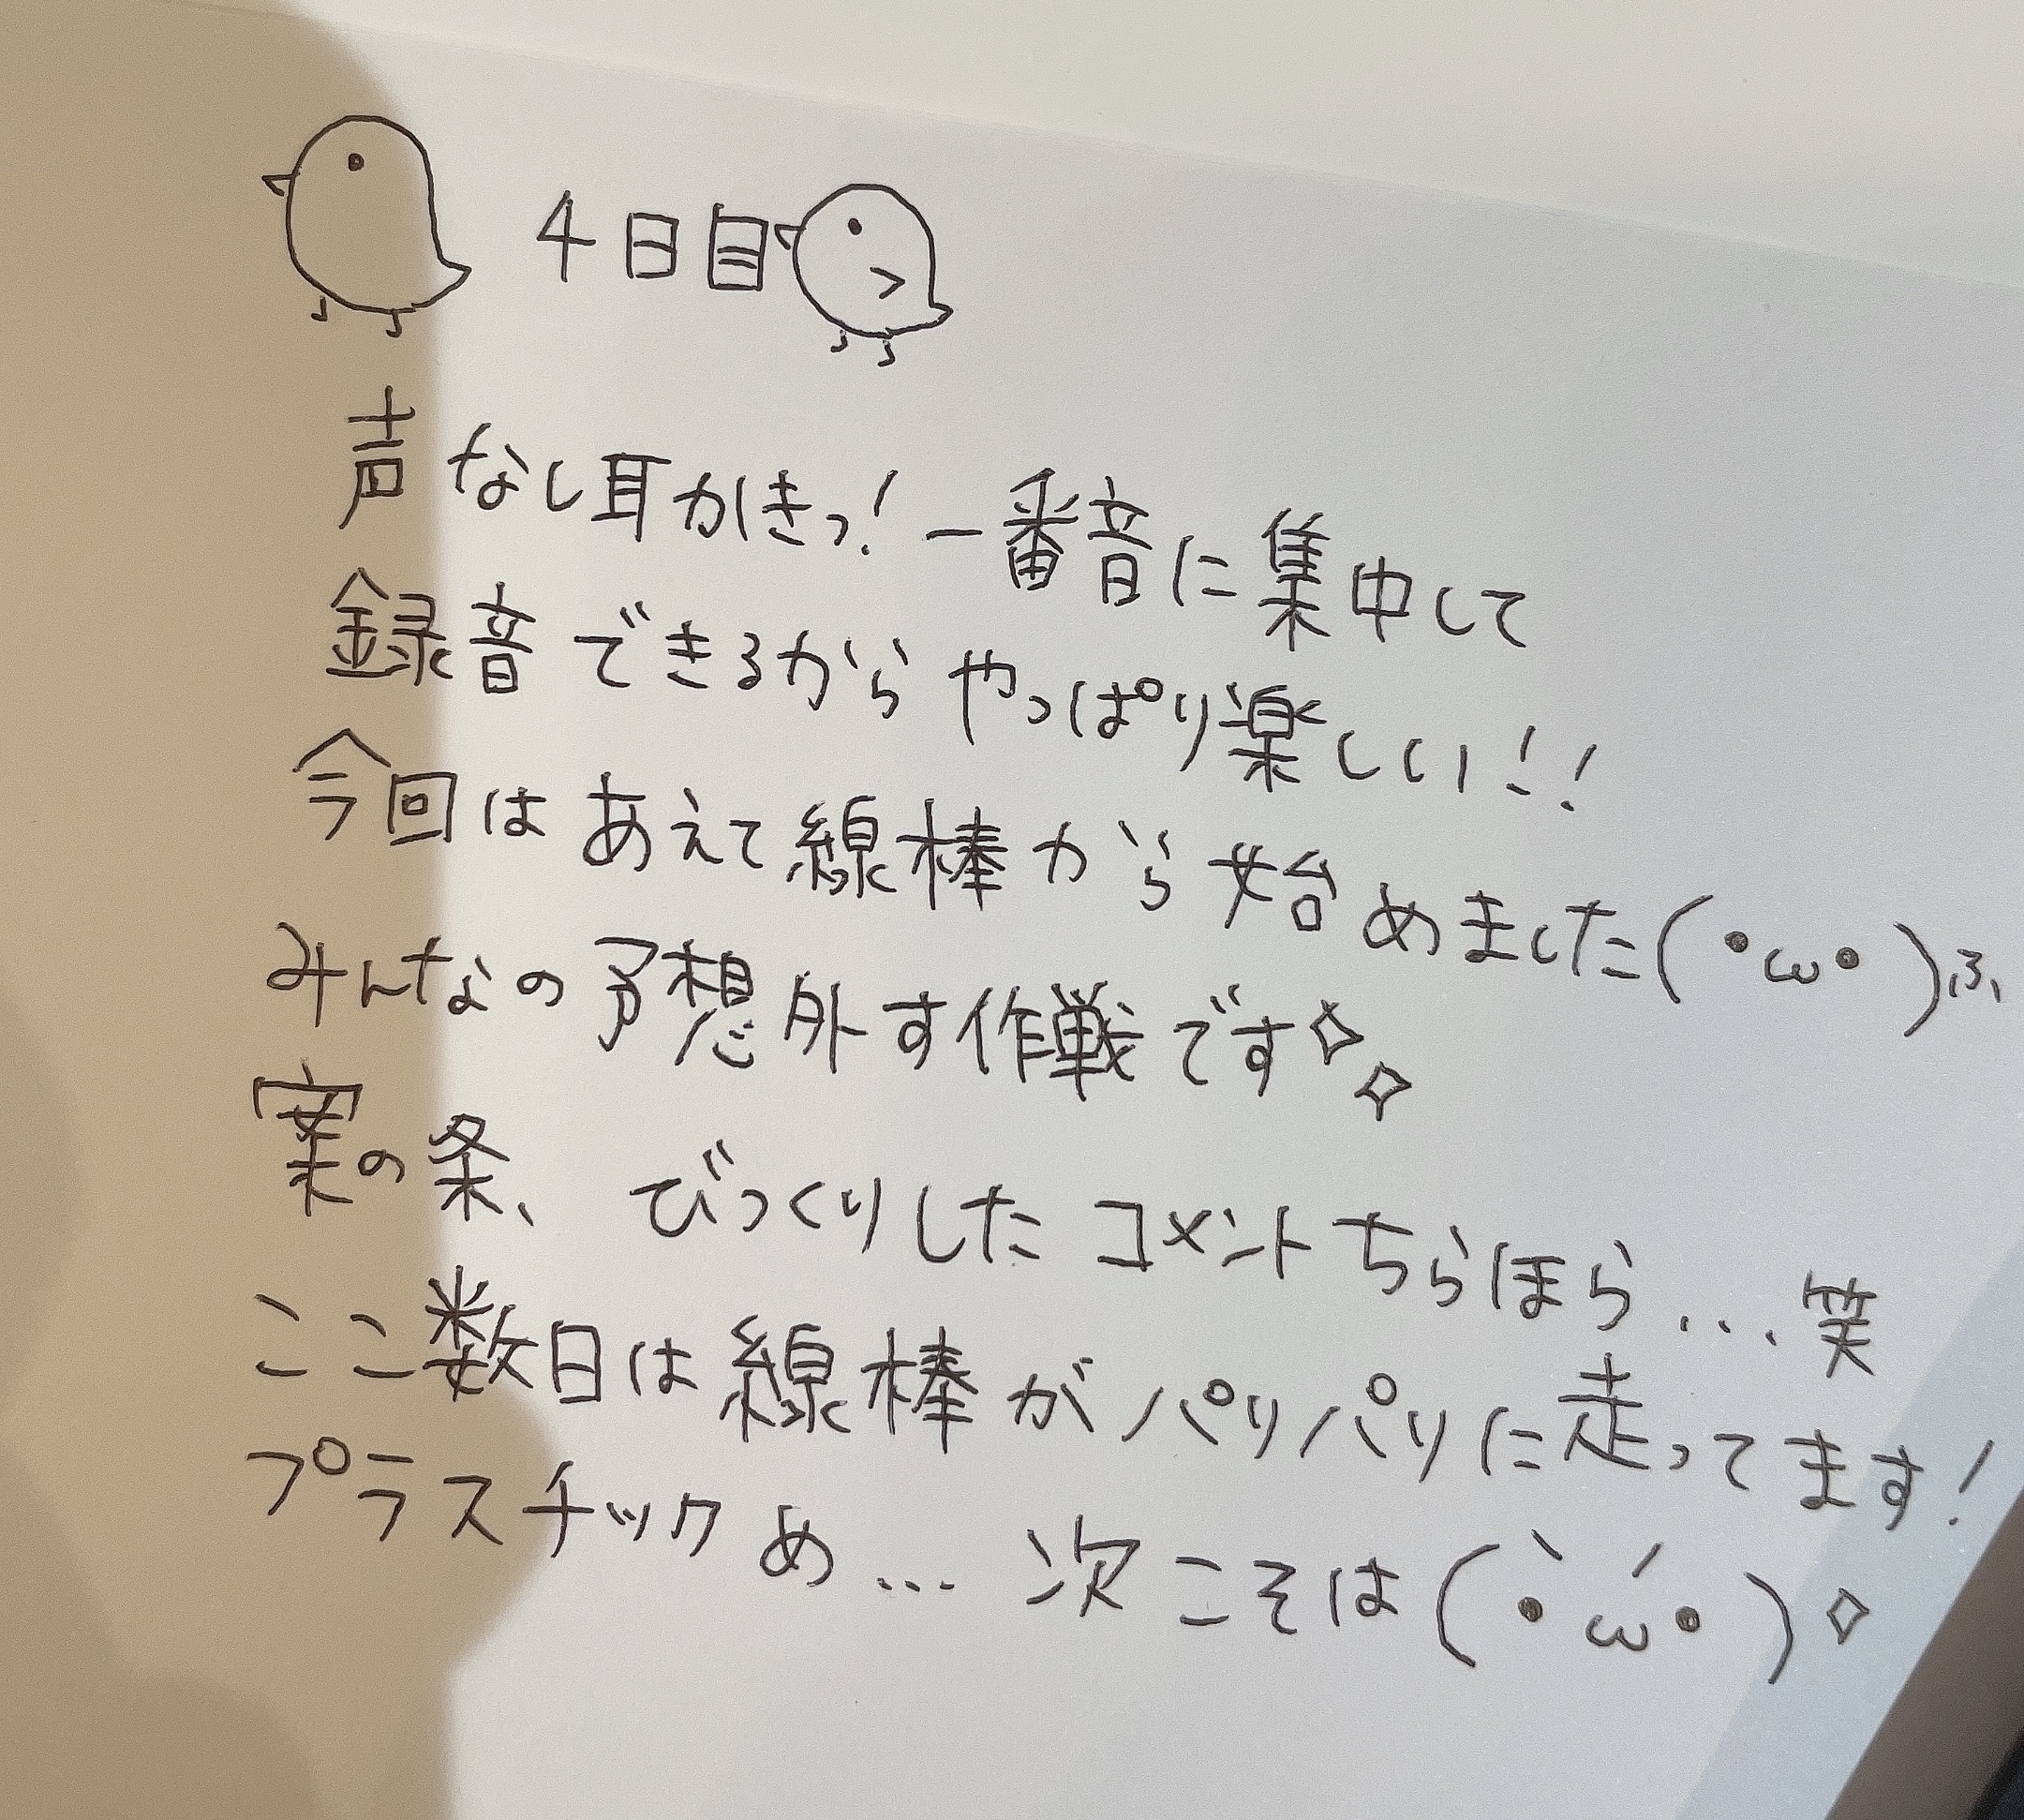 4日目
声なし耳かきっ!一番音に集中して
録音できるからやっぱり楽しい!!
今回はあえて線棒から始めました(・ω・)ふ、
みんなの予想外す作戦です✧✧
案の条、びっくりしたコメントちらほら...笑
ここ数日は線棒がパリパリに走ってます!
プラスチックめ...次こそは(`・ω・´)✧